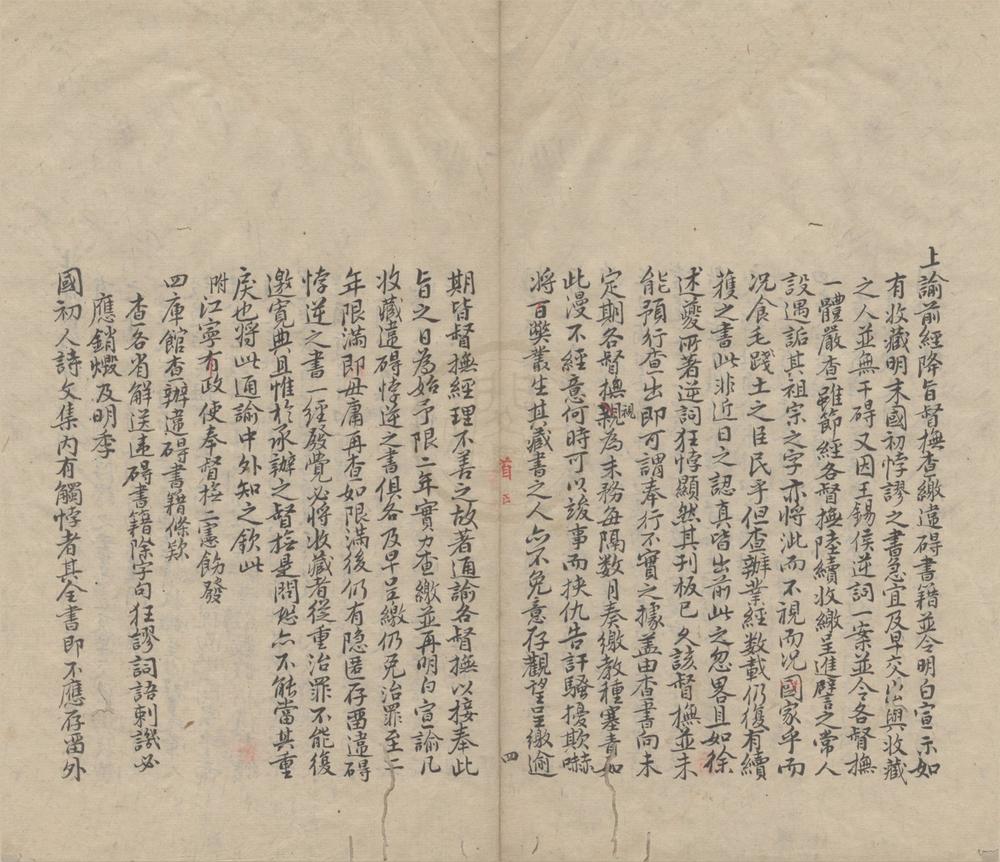 上諭前經降旨督撫查繳違碍書籍並令明白宣示如
有收藏明末國初悖謬之書急宜及早交出與收藏
之人並無干碍又因王錫侯逆詞一案並令各督撫
一體嚴查雖節經各督撫陸續收繳呈進譬之常人
設遇詬其祖宗之字亦將泚而不視而況國家乎而
况食毛踐土之臣民乎但查辦業經数載仍復有續
獲之書此非近日之認真皆出前此之忽畧且如徐
述夔所著逆詞狂悖顯然其刊板已久該督撫並未
能預行查出即可謂奉行不實之據盖由查書向未
定期各督撫視為末務每隔数月奏繳数種塞責如
此漫不經意何時可以竣事而挾仇告訐騷擾欺嚇
將百獘叢生其藏書之人亦不免意存觀望呈繳逾
四
期皆督撫經理不善之故著通諭各督撫以接奉此
旨之日為始予限二年實力查繳並再明白宣諭凡
收藏違碍悖逆之書俱各及早呈繳仍免治罪至二
年限滿即毋庸再查如限滿後仍有隐匿存畱違碍
悖逆之書一經發覺必將收藏者從重治罪不能復
邀寬典且惟於承辦之督撫是問恐亦不能當其重
戾也將此通諭中外知之欽此
附江寧布政使奉督撫二憲飭發
四庫館查辦違碍書籍條欵
查各省解送違碍書籍除字句狂謬詞語刺譏必
應銷燬及明季
國初人詩文集内有觸悖者其全書即不應存畱外